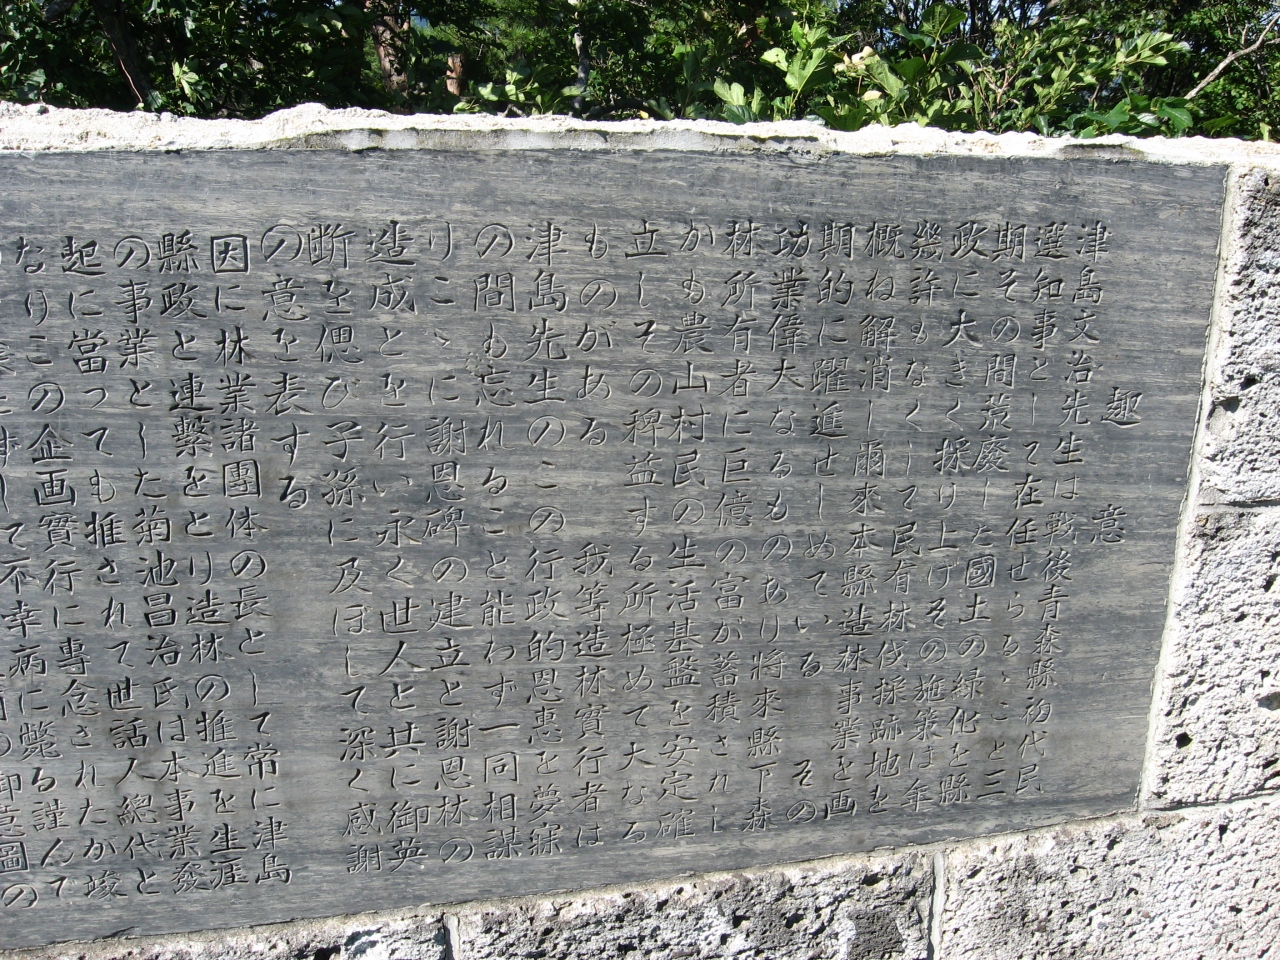 趣意
津島文治先生は戦後青森縣初代民
選知事として在任せらるゝこと三
期その間荒廢した國土の緑化を縣
政に大きく採り上げその施策は年
幾許もなくして民有林伐採跡地を
概ね解消し爾來本縣造林事業を画
期的に躍進せしめている その
功業偉大なるものあり將來縣下森
林所有者に巨億の富が蓄積されし
かも農山村民の生活基盤を安定確
立しその稗益する所極めて大なる
ものがある 我等造林實行者は
津島先生のこの行政的恩惠を夢寐
の間も忘れること能わず一同相謀
りこゝに謝恩碑の建立と謝恩林の
造成とを行い永く世人と共に御英
断を偲び子孫に及ぼして深く感謝
の意を表する
因に林業諸團体の長として常に津島
縣政と連繫をとり造林の推進を生涯
の事業とした菊池昌治氏は本事業發
起に當っても推されて世話人總代と
なりこの企画實行に專念されたが竣
して不幸病に斃る謹んで
御意圖の